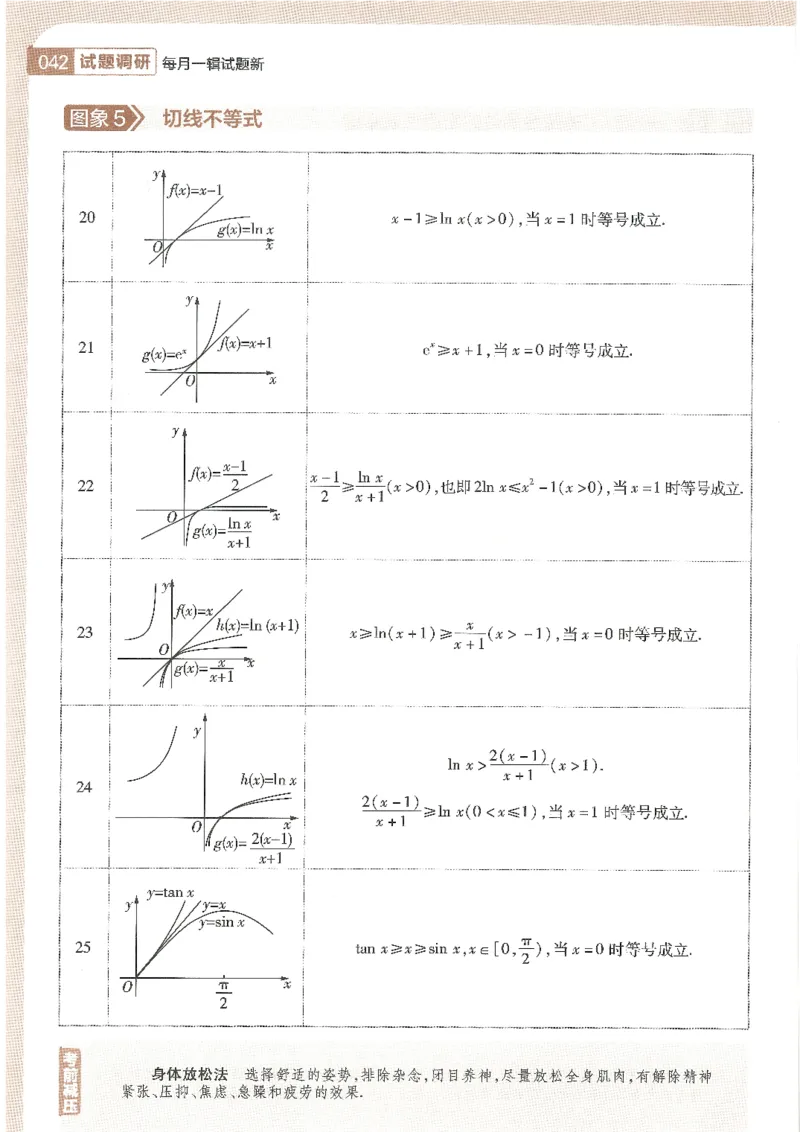 042 试题调研 每月一辑试题新
图象5 切线不等式
20
y
f(x)=x-1
g(x)=ln x
O
x
x-1≥ln x(x>0),当x=1时等号成立.
21
y
f(x)=x+1
g(x)=eˣ
O
x
eˣ≥x+1,当x=0时等号成立.
22
y
f(x)=(x-1)/2
O
x
g(x)=ln x/(x+1)
(x-1)/2≥ln x/(x+1)(x>0),也即2ln x≤x²-1(x>0),当x=1时等号成立.
23
y
f(x)=x
h(x)=ln(x+1)
O
x
g(x)=x/(x+1)
x≥ln(x+1)≥x/(x+1)(x>-1),当x=0时等号成立.
24
y
h(x)=ln x
O
x
g(x)=2(x-1)/(x+1)
ln x>2(x-1)/(x+1)(x>1).
2(x-1)/(x+1)≥ln x(0<x≤1),当x=1时等号成立.
25
y=tan x
y
y=x
y=sin x
O
π/2
x
tan x≥x≥sin x,x∈[0,π/2),当x=0时等号成立.
考前减压
身体放松法 选择舒适的姿势,排除杂念,闭目养神,尽量放松全身肌肉,有解除精神
紧张、压抑、焦虑、急躁和疲劳的效果.